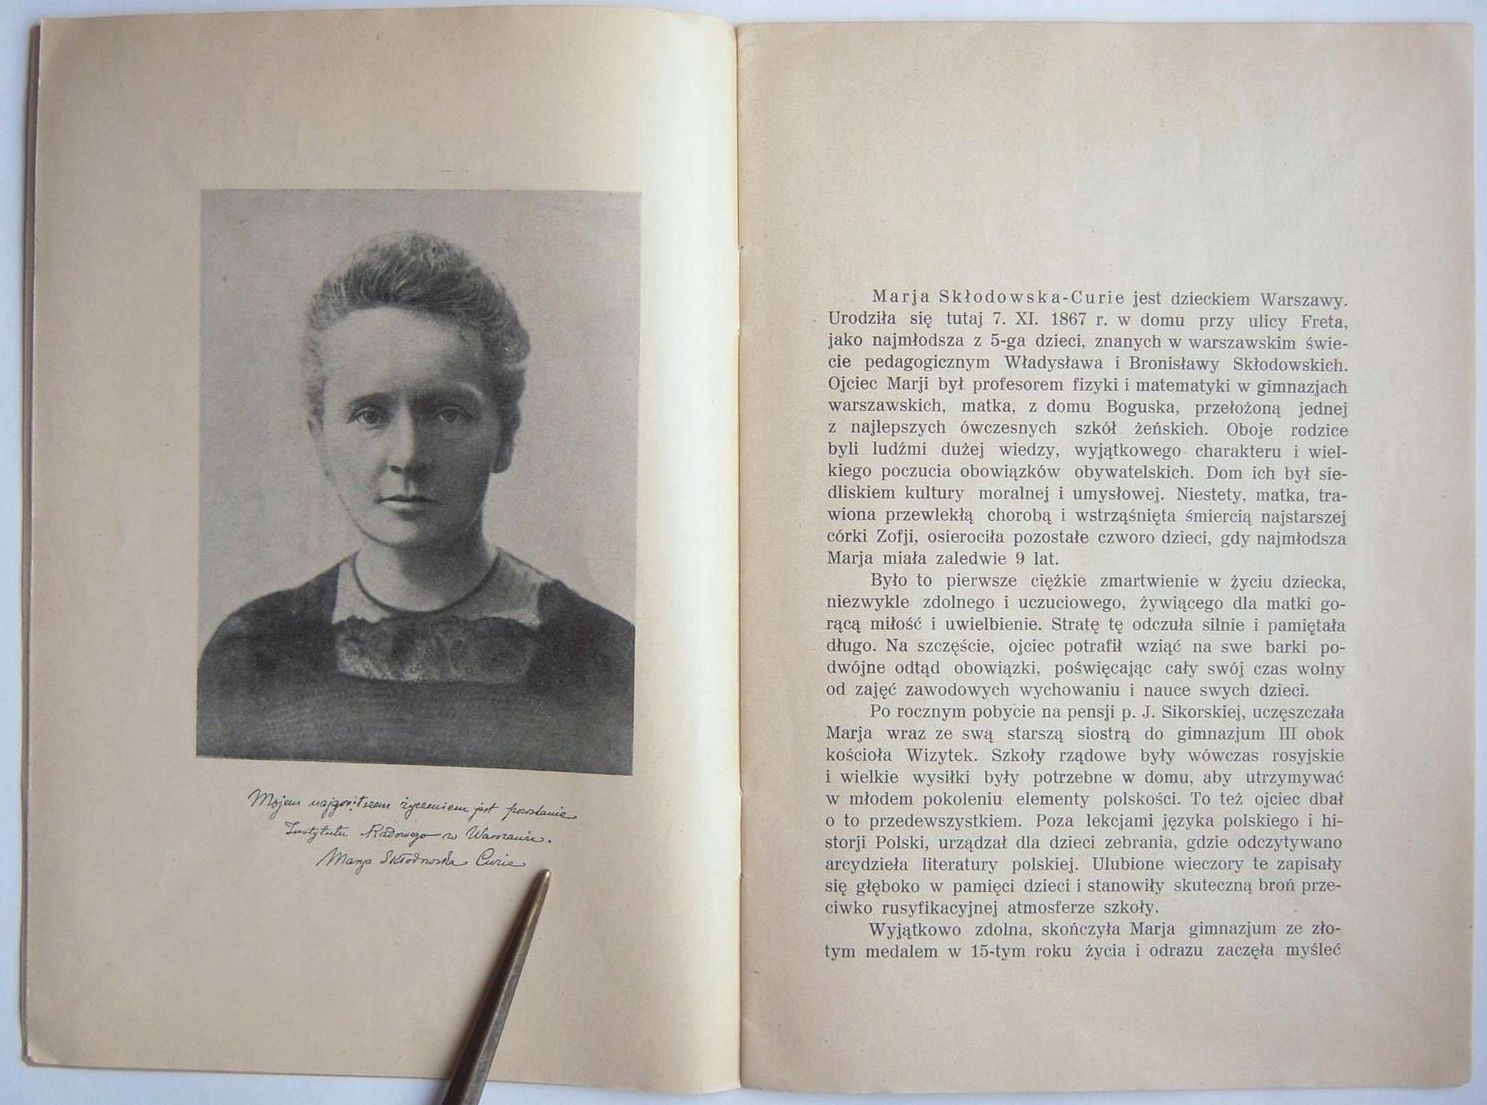 Mojem najgorętszem życzeniem jest powstanie
Instytutu Radowego w Warszawie.
Marja Skłodowska Curie
Marja Skłodowska-Curie jest dzieckiem Warszawy.
Urodziła się tutaj 7. XI. 1867 r. w domu przy ulicy Freta,
jako najmłodsza z 5-ga dzieci, znanych w warszawskim świe-
cie pedagogicznym Władysława i Bronisławy Skłodowskich.
Ojciec Marji był profesorem fizyki i matematyki w gimnazjach
warszawskich, matka, z domu Boguska, przełożoną jednej
z najlepszych ówczesnych szkół żeńskich. Oboje rodzice
byli ludźmi dużej wiedzy, wyjątkowego charakteru i wiel-
kiego poczucia obowiązków obywatelskich. Dom ich był sie-
dliskiem kultury moralnej i umysłowej. Niestety, matka, tra-
wiona przewlekłą chorobą i wstrząśnięta śmiercią najstarszej
córki Zofji, osierociła pozostałe czworo dzieci, gdy najmłodsza
Marja miała zaledwie 9 lat.
Było to pierwsze ciężkie zmartwienie w życiu dziecka,
niezwykle zdolnego i uczuciowego, żywiącego dla matki go-
rącą miłość i uwielbienie. Stratę tę odczuła silnie i pamiętała
długo. Na szczęście, ojciec potrafił wziąć na swe barki po-
dwójne odtąd obowiązki, poświęcając cały swój czas wolny
od zajęć zawodowych wychowaniu i nauce swych dzieci.
Po rocznym pobycie na pensji p. J. Sikorskiej, uczęszczała
Marja wraz ze swą starszą siostrą do gimnazjum III obok
kościoła Wizytek. Szkoły rządowe były wówczas rosyjskie
i wielkie wysiłki były potrzebne w domu, aby utrzymywać
w młodem pokoleniu elementy polskości. To też ojciec dbał
o to przedewszystkiem. Poza lekcjami języka polskiego i hi-
storji Polski, urządzał dla dzieci zebrania, gdzie odczytywano
arcydzieła literatury polskiej. Ulubione wieczory te zapisały
się głęboko w pamięci dzieci i stanowiły skuteczną broń prze-
ciwko rusyfikacyjnej atmosferze szkoły.
Wyjątkowo zdolna, skończyła Marja gimnazjum ze zło-
tym medalem w 15-tym roku życia i odrazu zaczęła myśleć